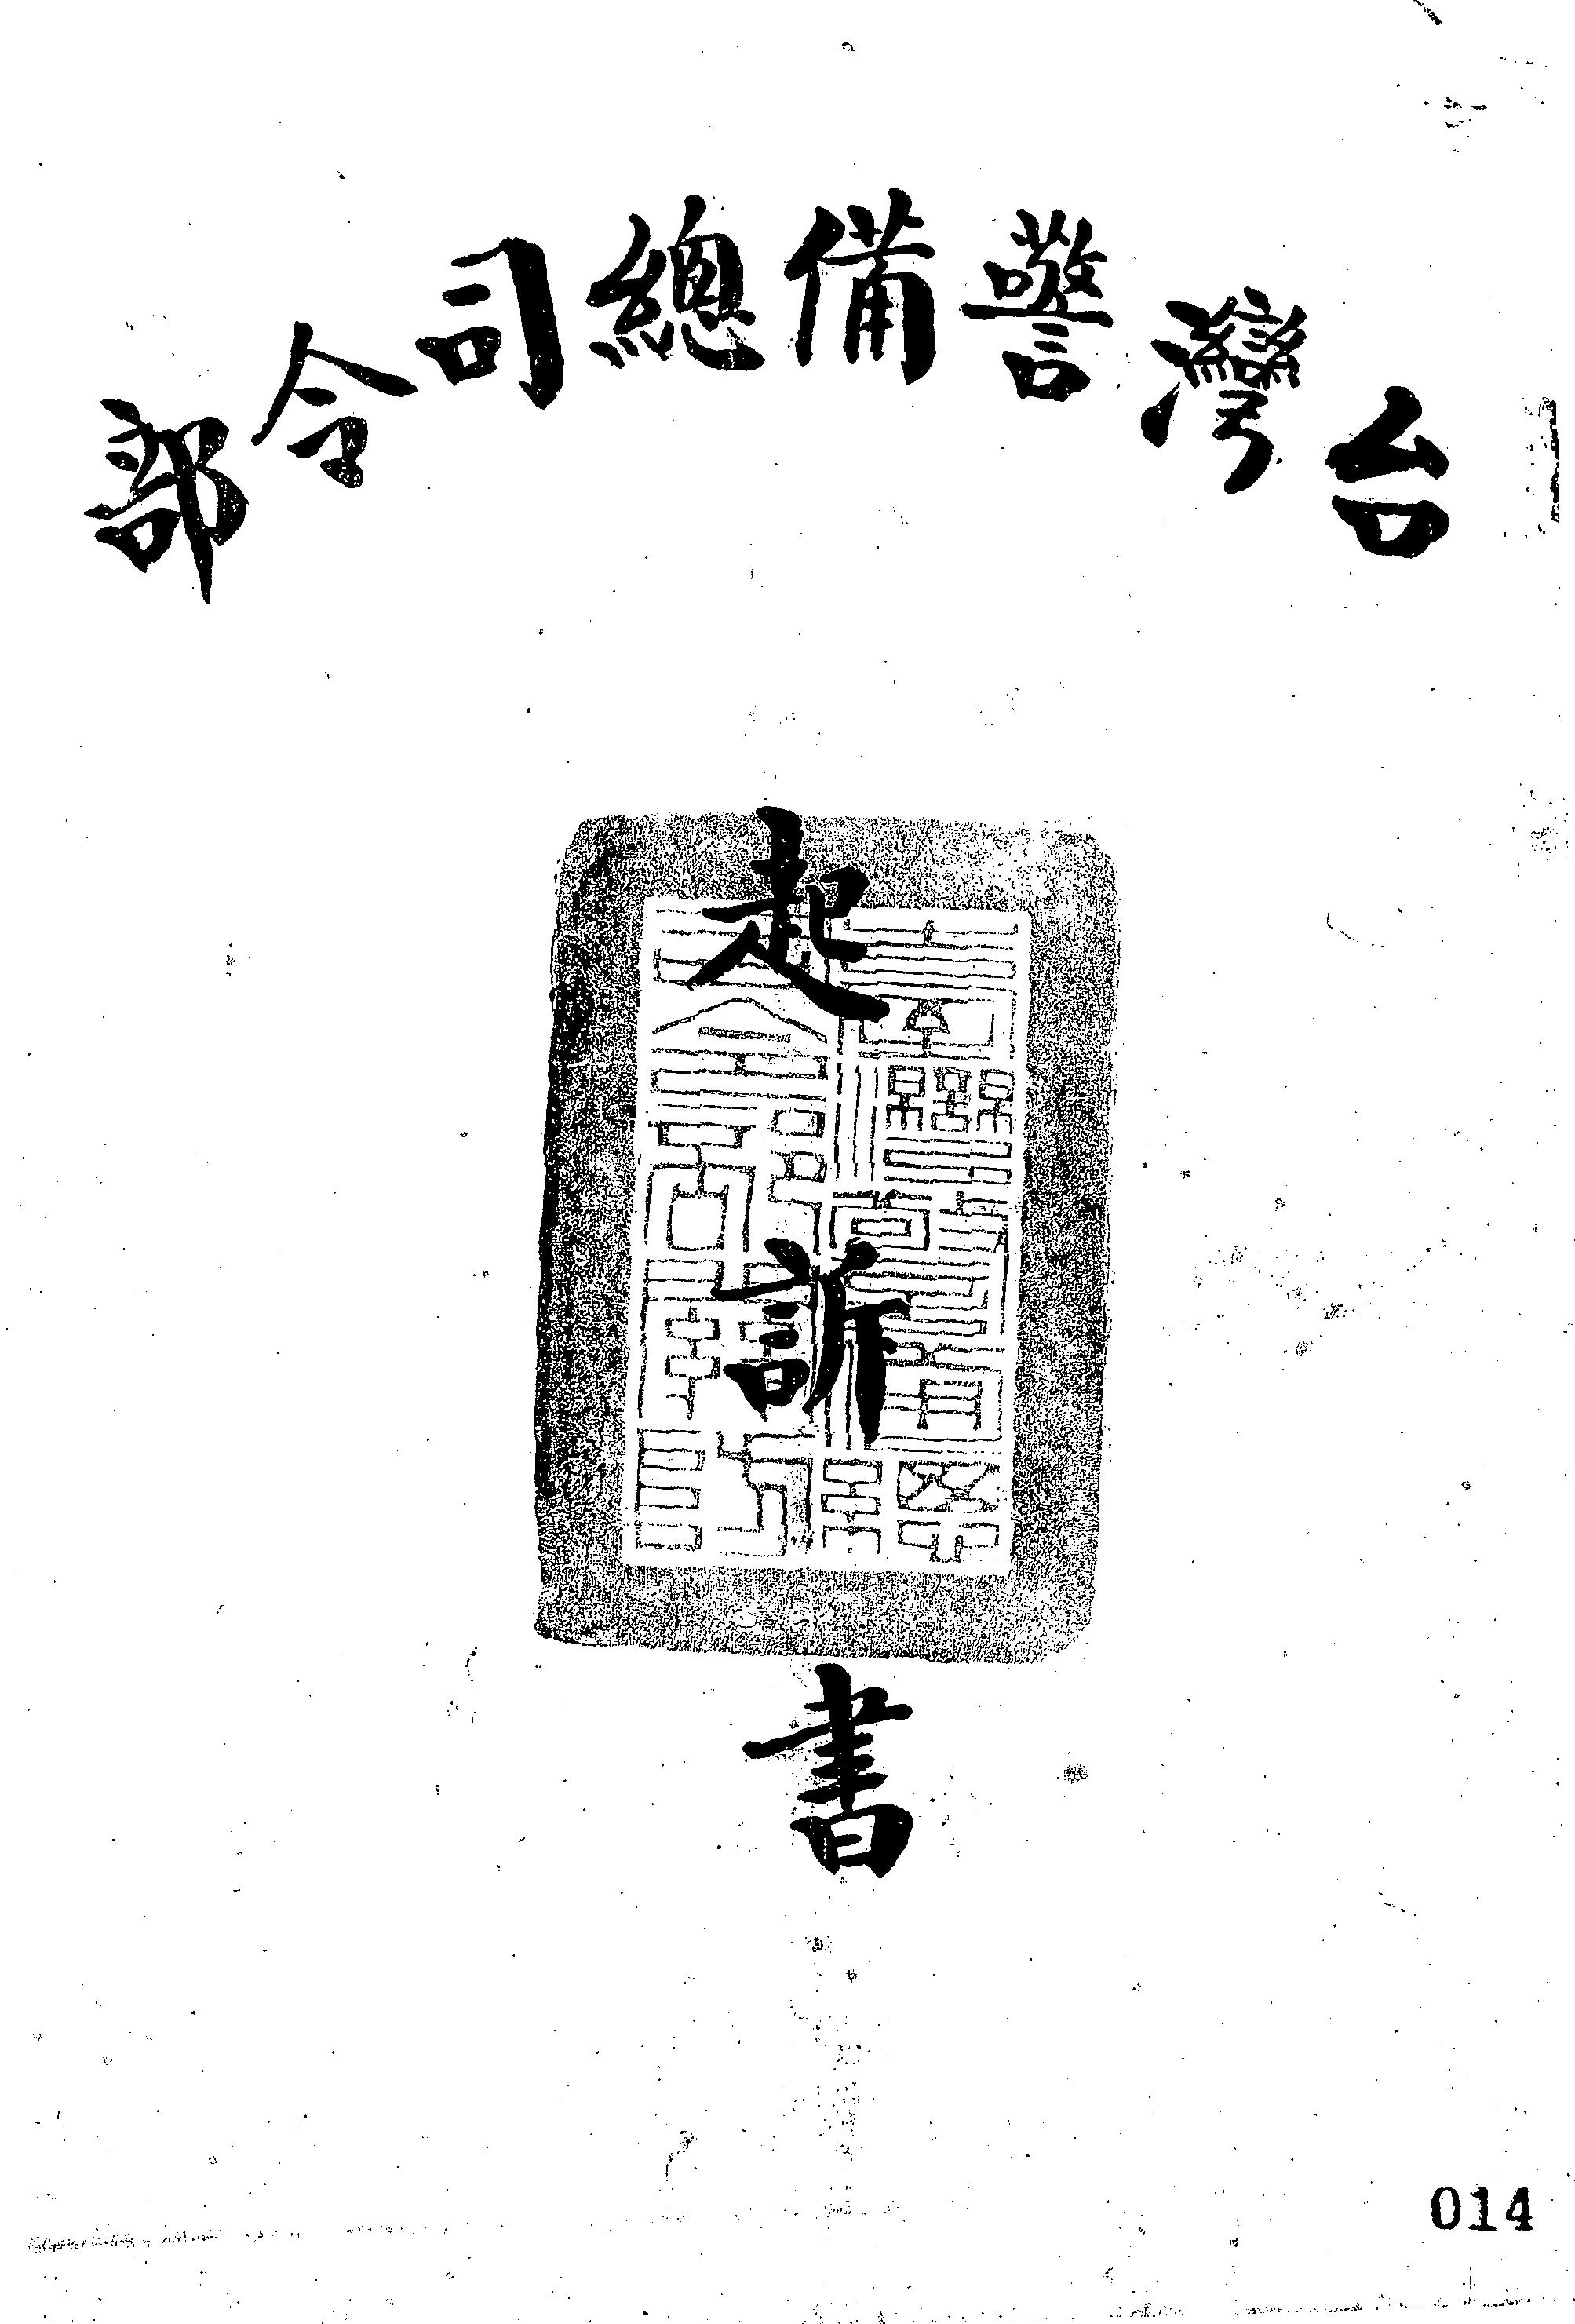 台灣警備總司令部
起訴書
014